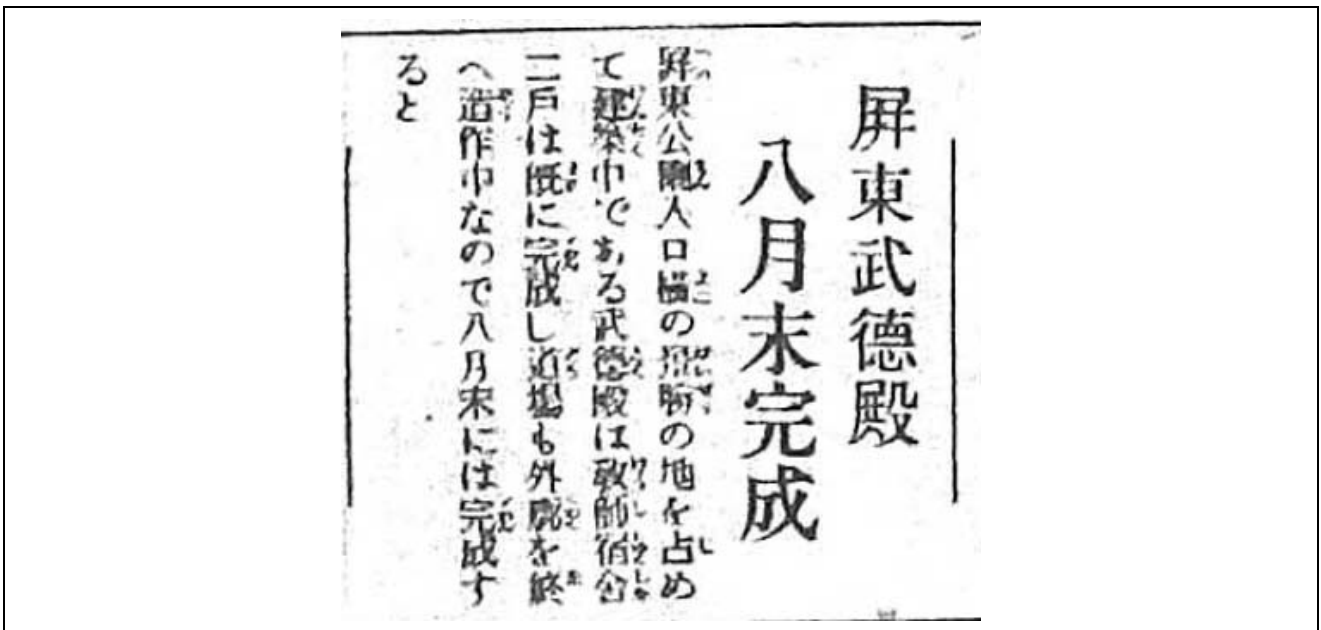 屏東武德殿
八月末完成
屏東公園入口橫の景勝の地を占め
て建築中である武德殿は敎師宿舍
二戶は既に完成し道場も外廓を終
へ造作中なので八月末には完成す
ると